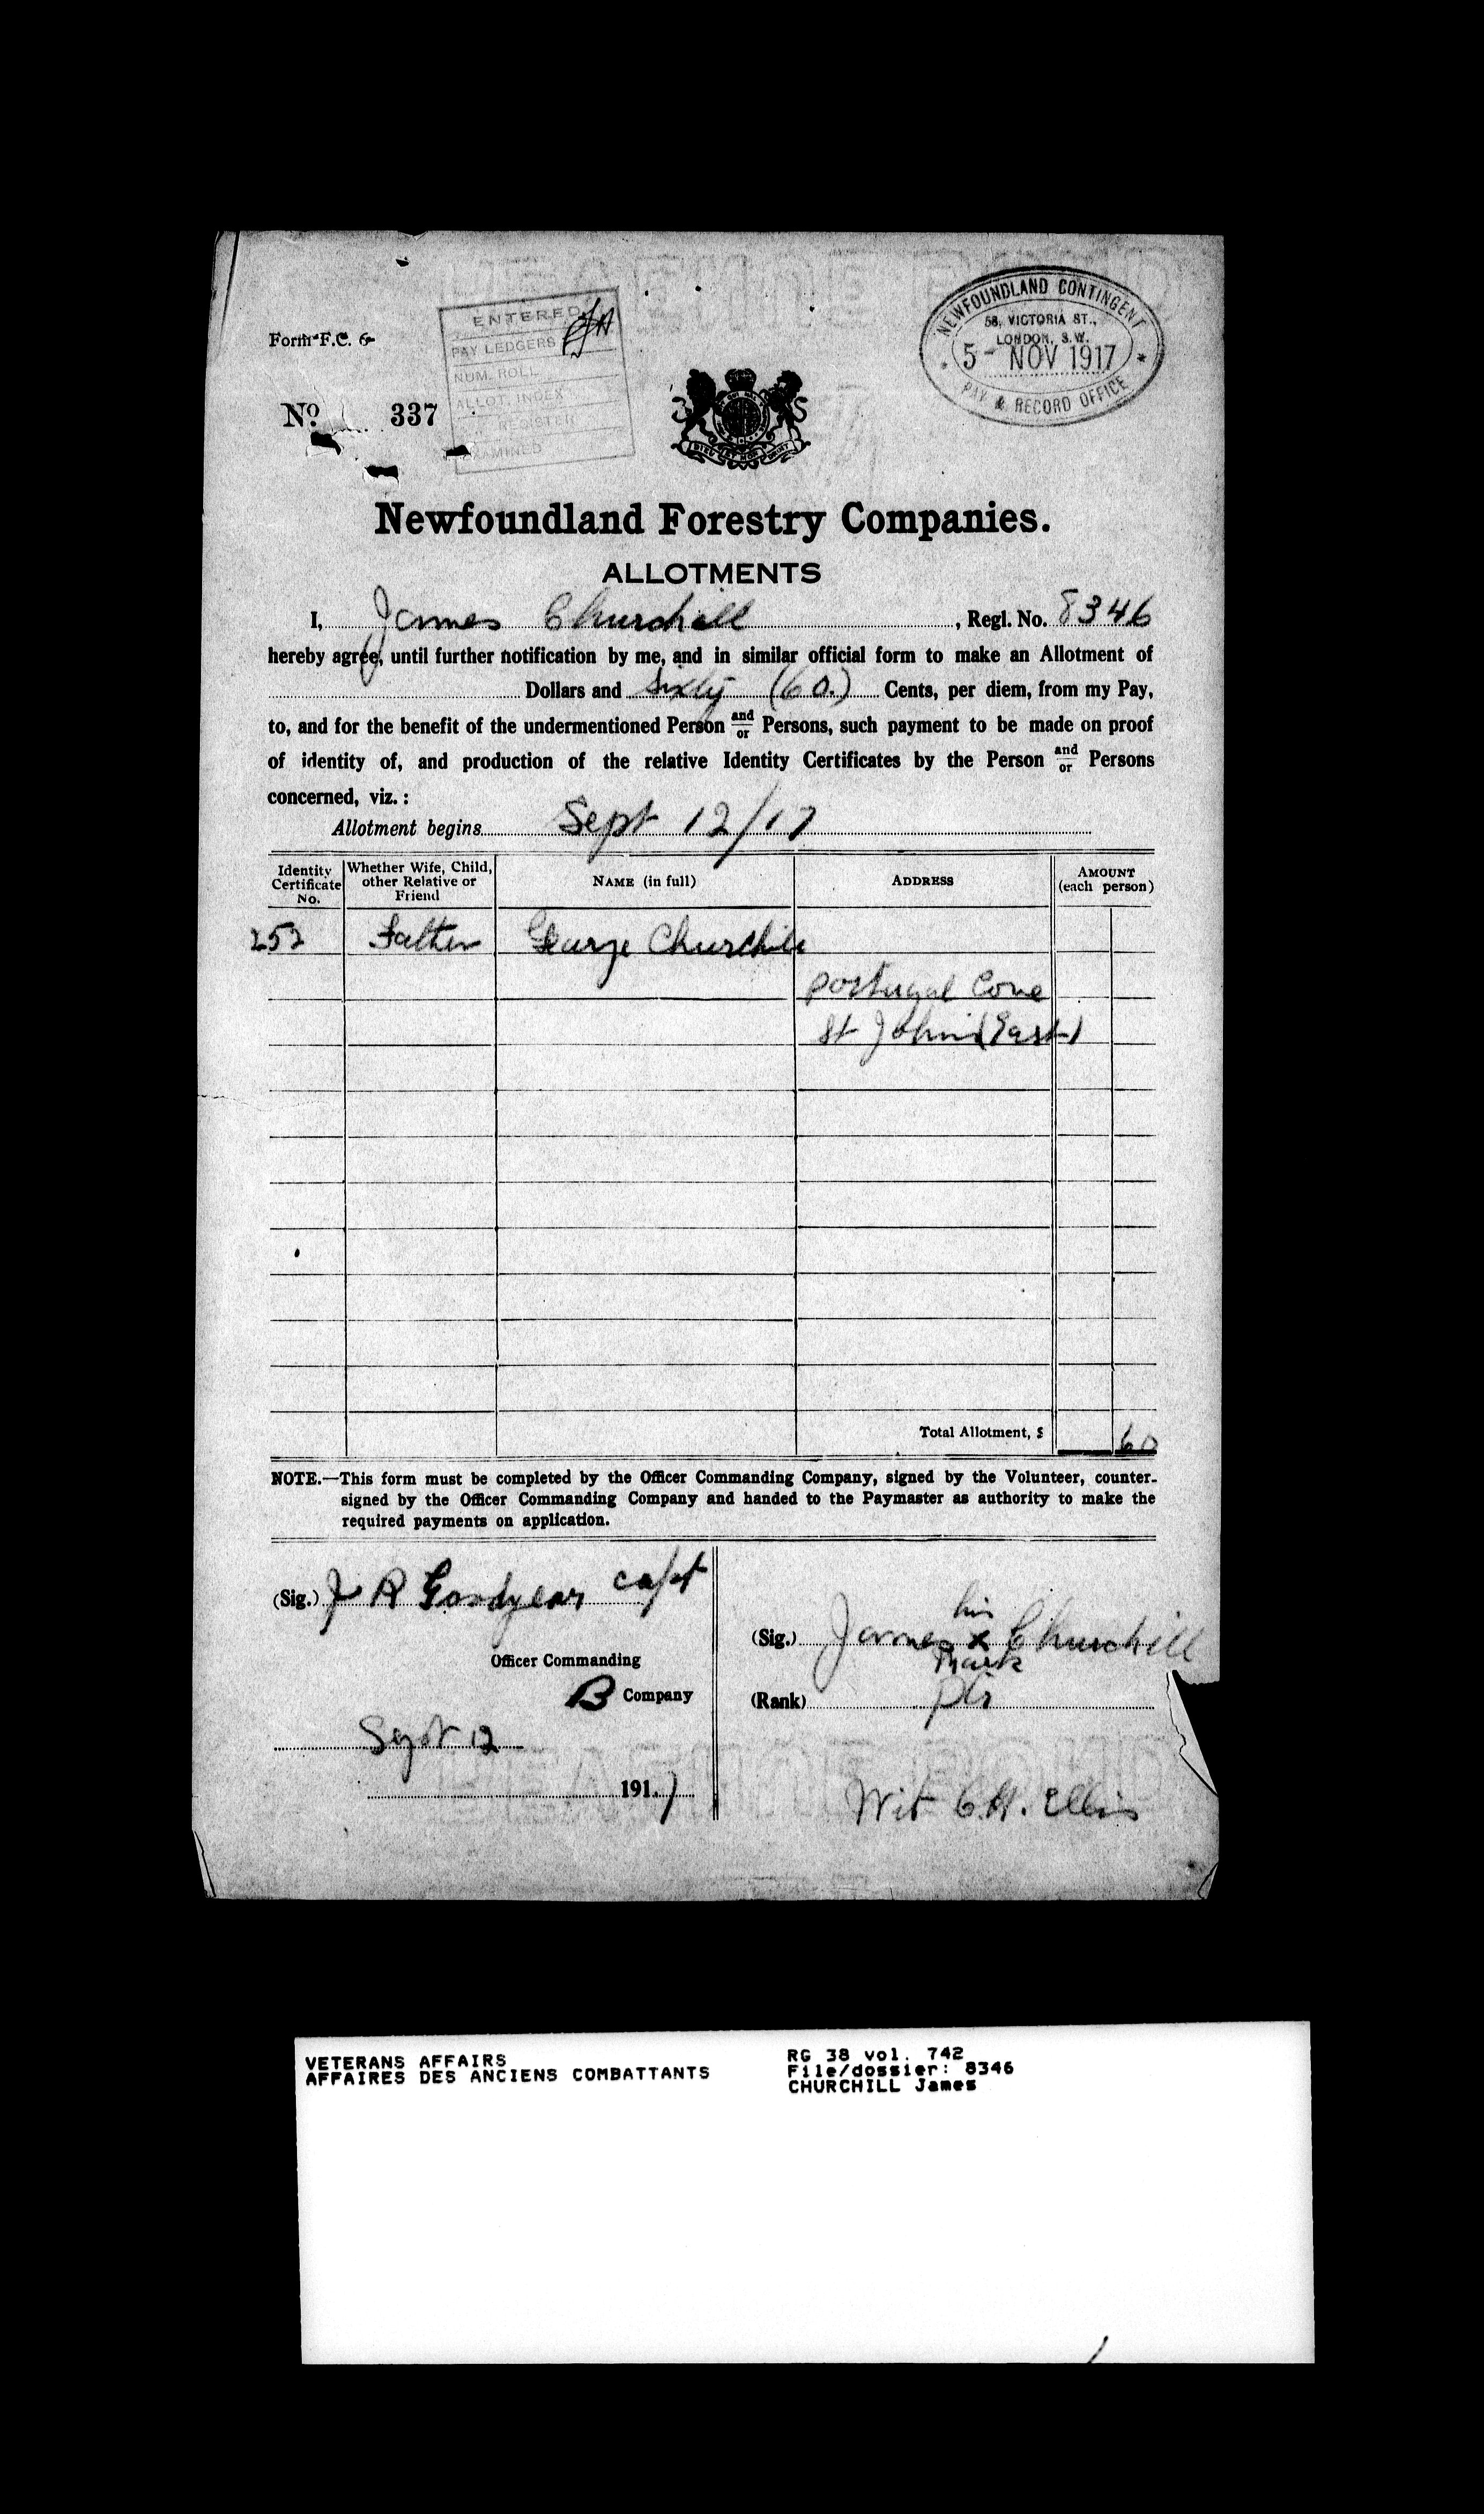 NEWFOUNDLAND CONTINGENT
58, VICTORIA ST.,
LONDON, S.W.
5- NOV 1917
PAY & RECORD OFFICE
ENTERED
PAY LEDGERS
NUM. ROLL
ALLOT. INDEX
" REGISTER
EXAMINED
Form F.C. 6
No 337
Newfoundland Forestry Companies.
ALLOTMENTS
I, James Churchill, Regl. No. 8346
hereby agree, until further notification by me, and in similar official form to make an Allotment of
Dollars and sixty (60.) Cents, per diem, from my Pay,
to, and for the benefit of the undermentioned Person and/or Persons, such payment to be made on proof
of identity of, and production of the relative Identity Certificates by the Person and/or Persons
concerned, viz. :
Allotment begins Sept 12/17
Identity Certificate No. Whether Wife, Child, other Relative or Friend NAME (in full) ADDRESS AMOUNT (each person)
252 Father George Churchill
Portugal Cove
St Johns (East)
Total Allotment, $ 60
NOTE.—This form must be completed by the Officer Commanding Company, signed by the Volunteer, counter-
signed by the Officer Commanding Company and handed to the Paymaster as authority to make the
required payments on application.
(Sig.) J R Goodyear Capt
Officer Commanding
B Company
Sept 12
1917
his
(Sig.) James x Churchill
mark
(Rank) Pte
Wit C.H. Ellis
VETERANS AFFAIRS
AFFAIRES DES ANCIENS COMBATTANTS
RG 38 vol. 742
File/dossier: 8346
CHURCHILL James